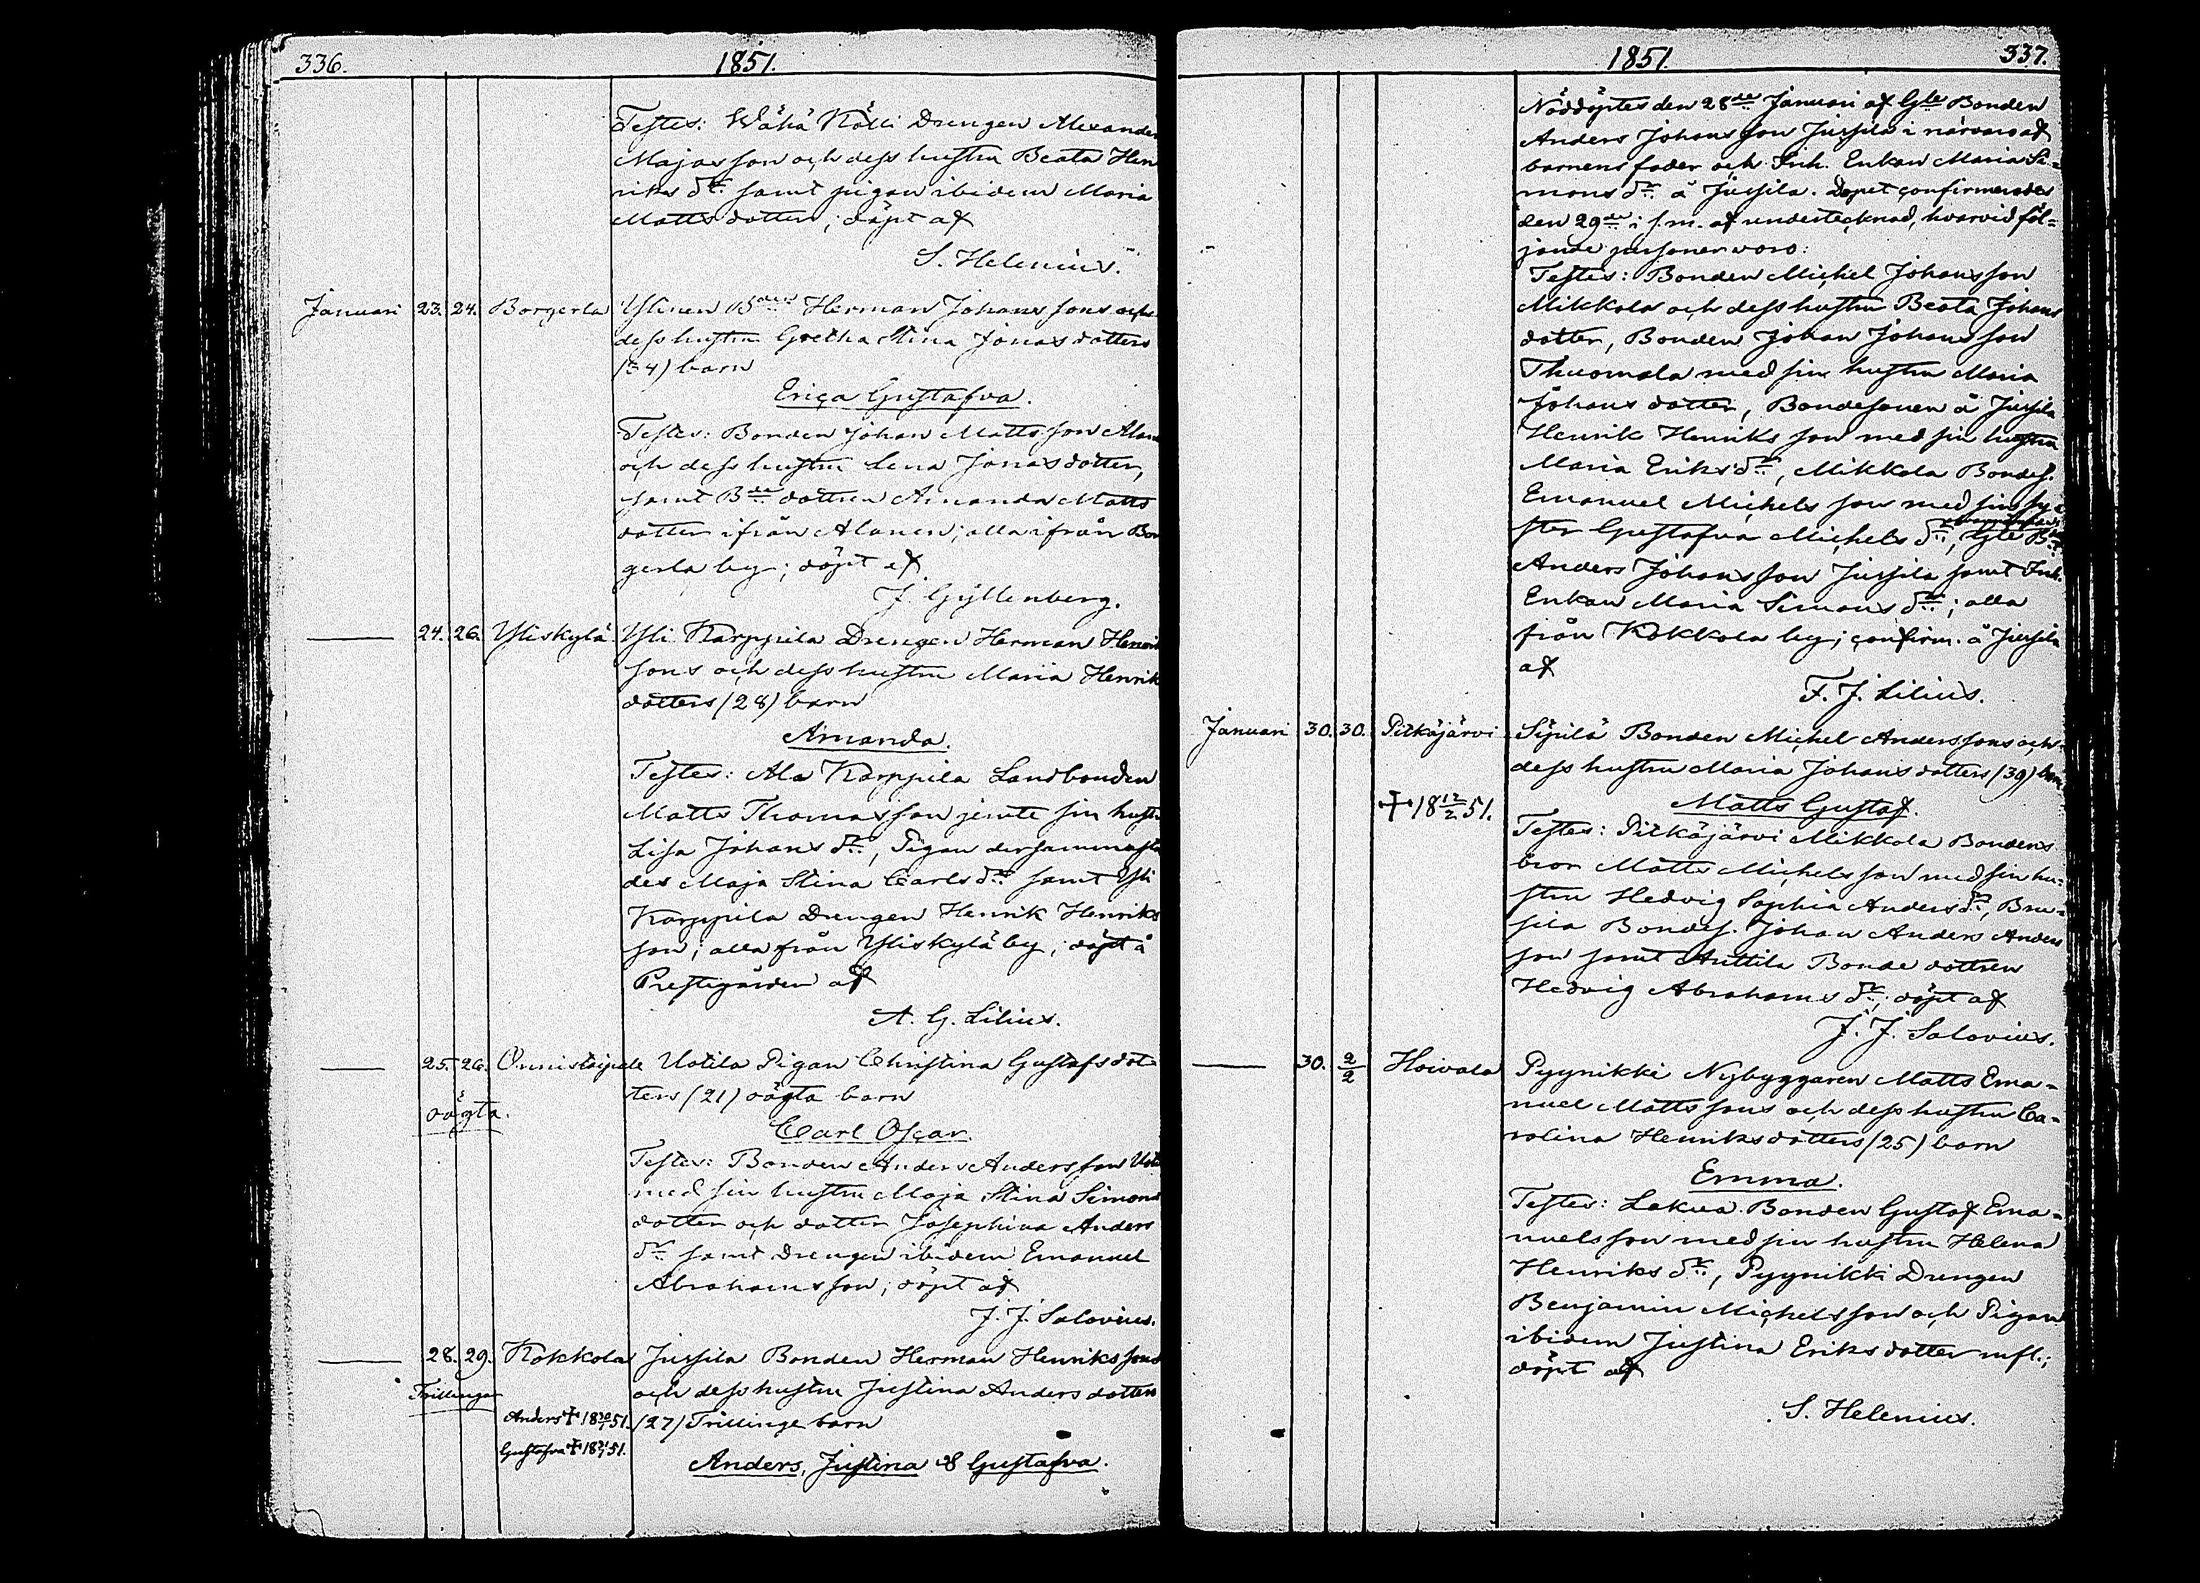 336.
1851.
Testes: Wähä Kölli Drengen Alexander
Majasson och dess hustru Beata Hen
riks dr samt pigan ibidem Maria
Matts dotter; döpt af
S. Helenius.
Januari 23. 24. Borgerla Ylinen Bden Herman Johanssons och
dess hustru Gretha Stina Jonasdotters
(34) barn
Erica Gustafva.
Testes: Bonden Johan Mattsson Alan
och dess hustru Lena Jonasdotter,
samt Bde dottren Amanda Matts
dotter ifrån Alanen; alla ifrån Bor
gerla by; döpt af
J. Gyllenberg.
24. 26. Yliskylä Yli Karppila Drengen Herman Henrik
sons och dess hustru Maria Henrik
dotters (28) barn
Amanda.
Testes: Ala Karppila Landbonden
Matts Thomasson jemte sin hustr
Lisa Johans dr, Pigan dersammasta
des Maja Stina Carls dr samt Yli
Karppila Drengen Henrik Henriks
son; alla från Yliskylä by; döpt å
Prestegården af
A. G. Lilius.
25. 26. Onnistaipale Uotila Pigan Christina Gustafs dot
oägta. ters (21) oägta barn
Carl Oscar.
Testes: Bonden Anders Andersson Uoti
med sin hustru Maja Stina Simons
dotter och dotter Josephina Anders
dr samt Drengen ibidem Emanuel
Abrahamsson; döpt af
J. J. Salovius.
28. 29. Kokkola Jussila Bonden Herman Henrikssons
Trillingar och dess hustru Justina Andersdotters
Anders † 18 30/1 51. (27) Trillinge barn
Gustafva † 18 31/1 51.
Anders, Justina & Gustafva.
1851.
337.
Nöddöptes den 28de Januari af Gle Bonden
Anders Johansson Jussila i närvaro af
barnens fader och Inh. Enkan Maria Si=
mons dr å Jussila. Dopet confirmerades
den 29de i s.m. af undertecknad, hvarvid föl=
jande personer voro:
Testes: Bonden Michel Johansson
Mikkola och dess hustru Beata Johans
dotter, Bonden Johan Johansson
Thuomola med sin hustru Maria
Johans dotter, Bondesonen å Jussila
Henrik Henriksson med sin hustru
Maria Eriks dr, Mikkola Bondes.
Emanuel Michelsson med sin sy
ster Gustafva Michels dr, Gle Bn
Anders Johansson Jussila samt Inh.
Enkan Maria Simons dr; alla
från Kokkola by; confirm. å Jussila
af
F. J. Lilius.
Januari 30. 30. Pitkäjärvi Sipilä Bonden Michel Anderssons och
dess hustru Maria Johans dotters (39) barn
† 18 12/2 51. Matts Gustaf.
Testes: Pitkäjärvi Mikkola Bondens
bror Matts Michelsson med sin hu=
stru Hedvig Sophia Anders dr, Bru=
sila Bondes. Johan Anders Anders
son samt Anttila Bonde dottren
Hedvig Abrahams dr; döpt af
J. J. Salovius.
30. 2/2 Hoivala Pyynikki Nybyggaren Matts Ema=
nuel Mattssons och dess hustru Ca=
rolina Henriksdotters (25) barn
Emma.
Testes: Lakua Bonden Gustaf Ema=
nuelsson med sin hustru Helena
Henriks dr, Pyynikki Drengen
Benjamin Michelsson och Pigan
ibidem Justina Eriksdotter
döpt af
S. Helenius.